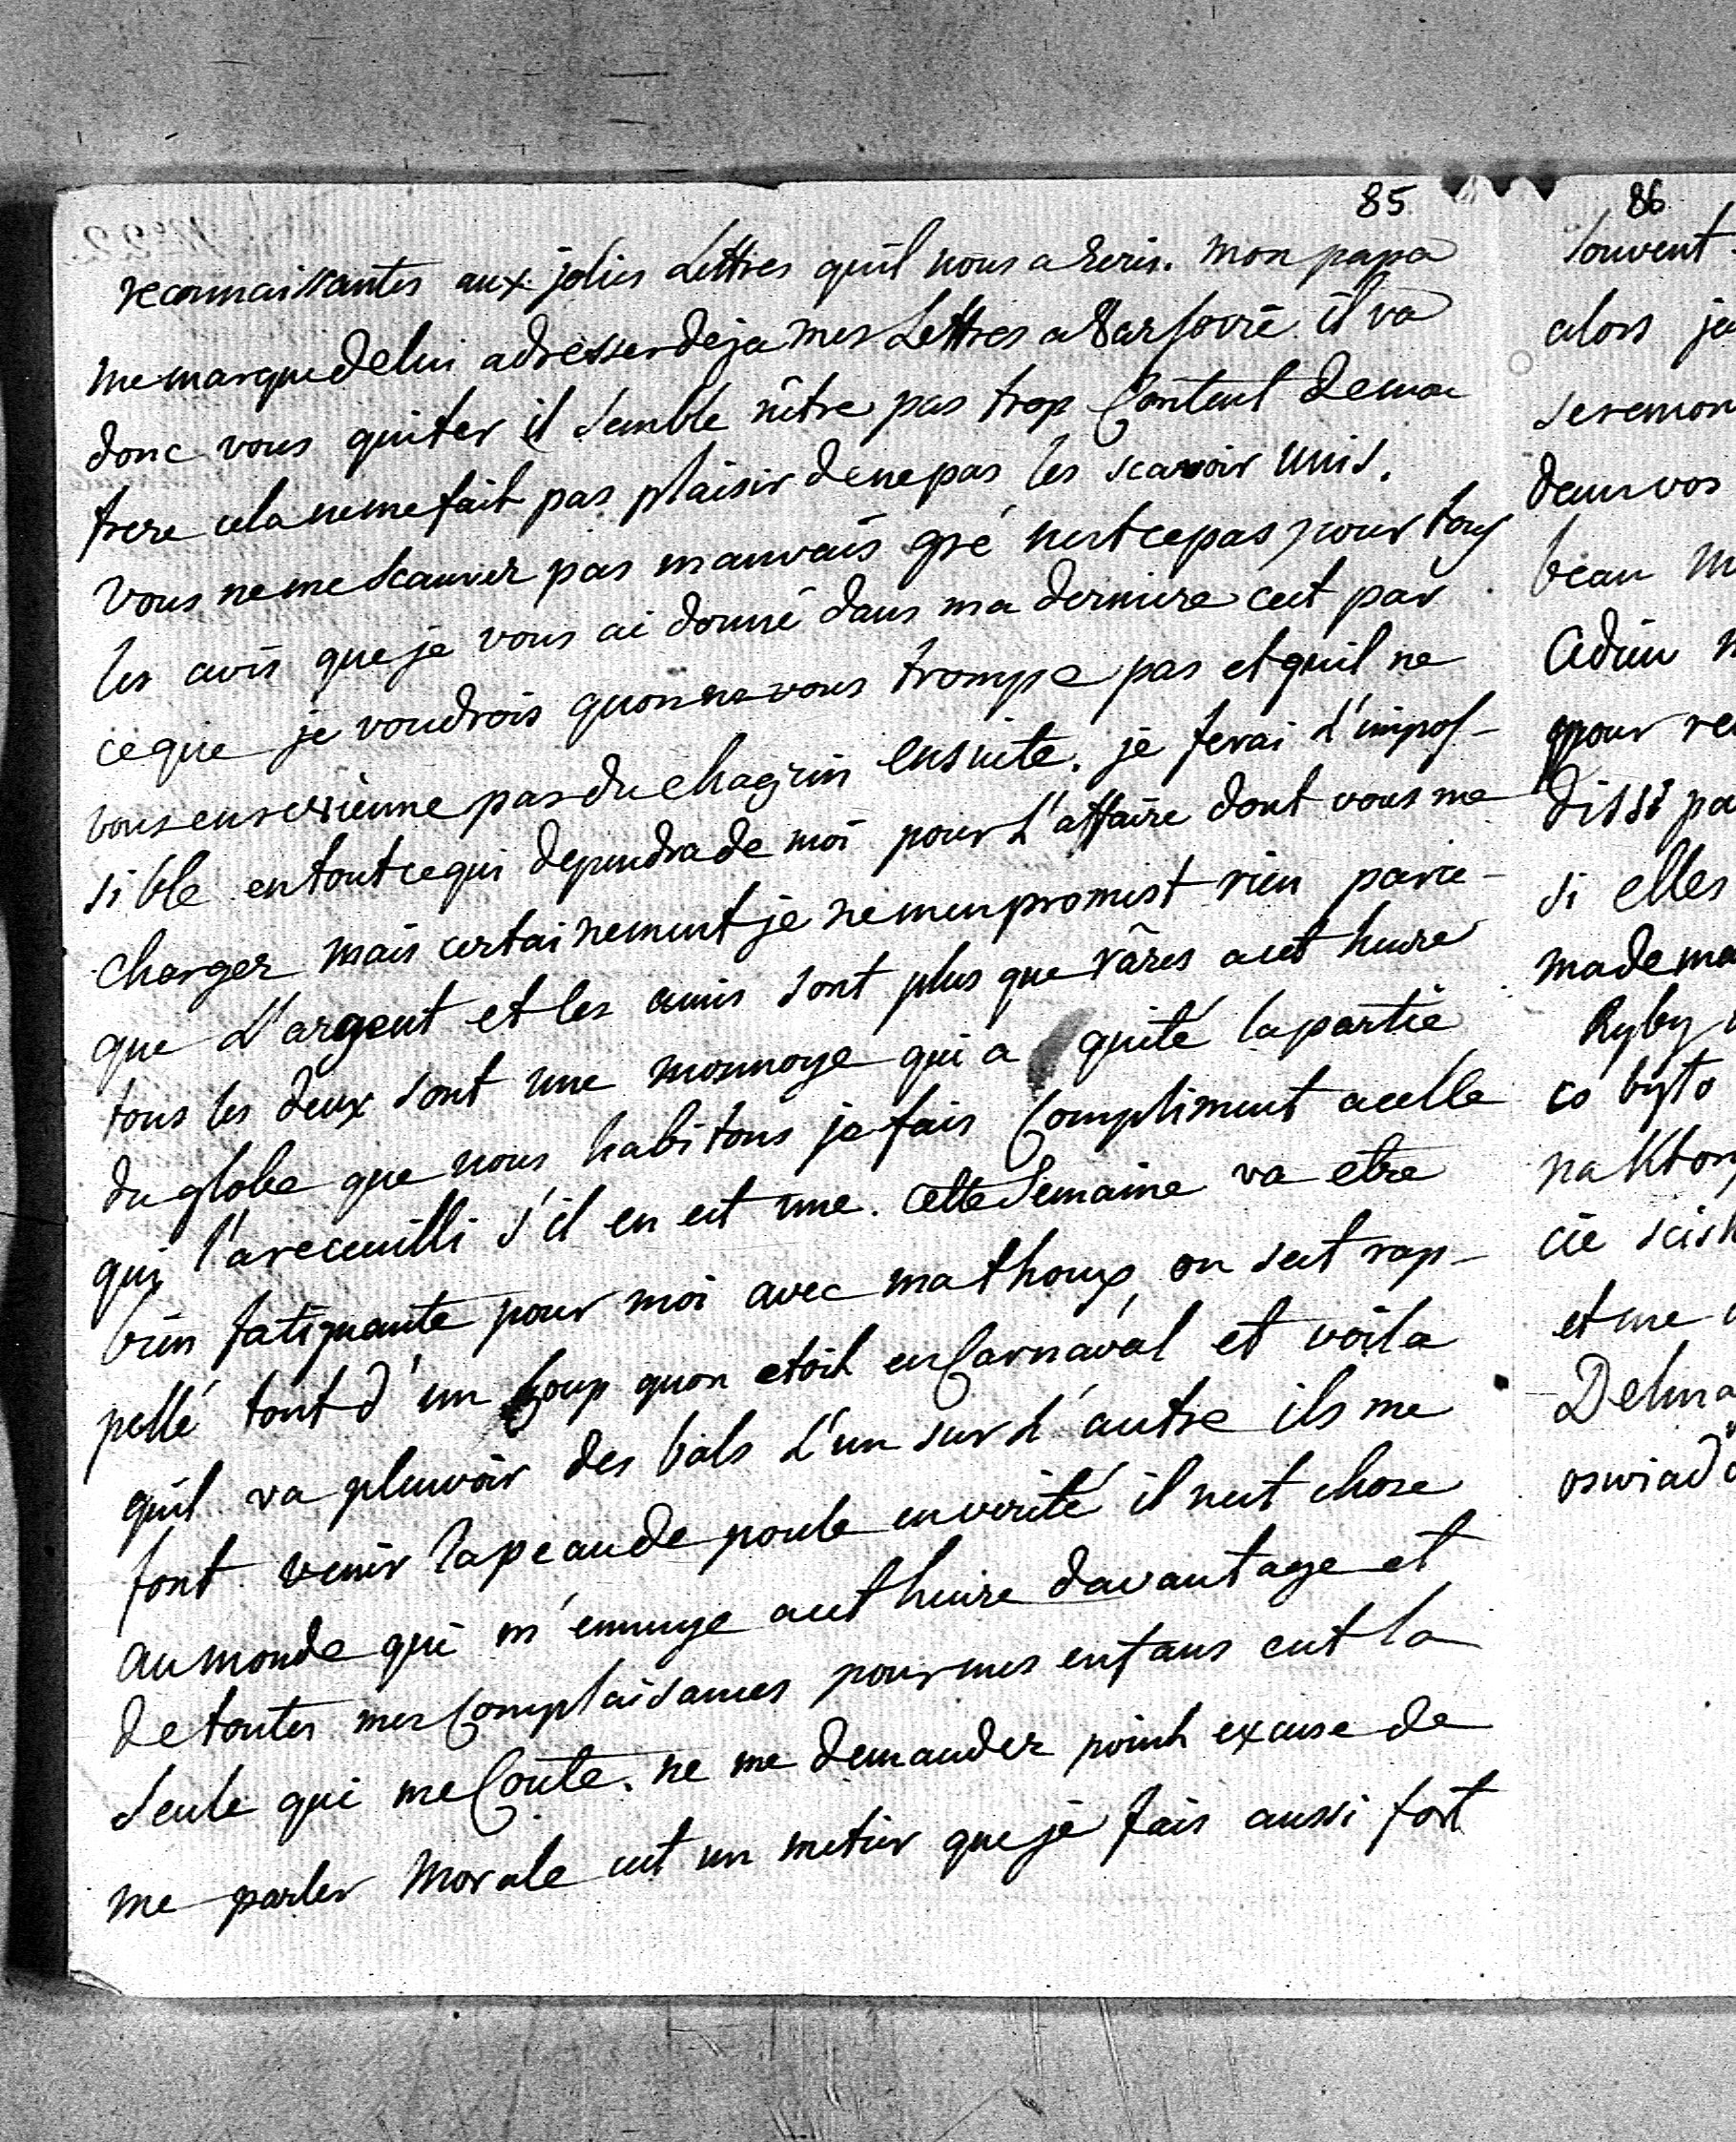 85
reconnaissantes aux jolies Lettres quil nous a Ecris. mon papa
me marque de lui adresser deja mes Lettres a Varsovie il va
donc vous quiter il semble nêtre pas trop Content de mon
frere cela ne me fait pas plaisir de ne pas les scavoir unis.
Vous ne me scauvez pas mauvais gré nest ce pas pour tous
les avis que je vous ai donné dans ma derniere cest par
ce que je voudrois quon ne vous trompe pas et quil ne
vous en revienne pas du chagrin ensuite. je ferai L'impos-
sible en tout ce qui dependra de moi pour L'affaire dont vous me
chargez mais certainement je ne men promest rien parce-
que L'argent et les amis sont plus que râres acet heure
tous les deux sont une monnoye qui a quité la partie
du globe que nous habitons je fais Compliment acelle
qui l'a receuilli s'il en est une. cette Semaine va etre
bien fatiguante pour moi avec ma thoux, on sest rap-
pellé tout d'un Coup quon etoit en Carnaval et voila
quil va pleuvoir des bals L'un sur L'autre ils me
font venir la peau de poule en verité il nest chose
au monde qui m'ennuye acet heure davantage et
de toutes mes Complaisances pour mes enfans cest la
Seule qui me Coute. ne me demandez point excuse de
me parler Morale cest un metier que je fais aussi fort
86
Souvent
alors je
seremon
beau
Adieu
pour re
dissi pa
si elles
made ma
Ryby
co byto
na Ktory
cie scisk
et me
Delma
oswiad